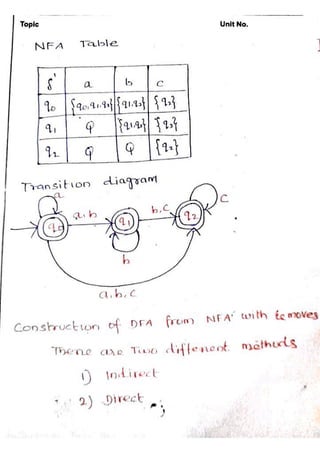 Topic Unit No.
NFA Table
δ' a b c
q0 {q0,q1,q2} {q1,q2} {q2}
q1 φ {q1,q2} {q2}
q2 φ φ {q2}
Transition diagram
a
c
a,b b,c
q0 q1 q2
b
a,b,c
Construction of DFA from NFA with ε moves
There are Two different methods
1) Indirect
2) Direct